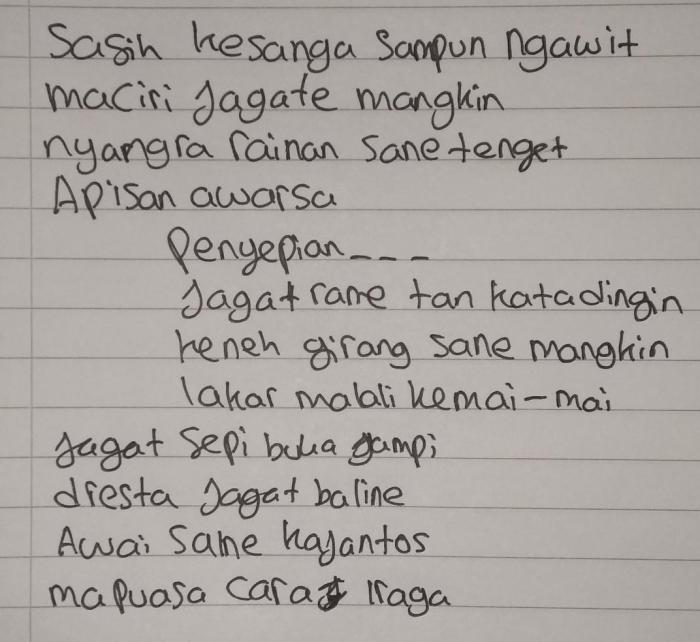 Sasih kesanga sampun ngawit
maciri jagate mangkin
nyangra rainan sane tenget
Apisan awarsa
Penyepian---
Jagat rame tan katadingin
keneh girang sane mangkin
lakar malali kemai-mai
Jagat sepi buka gumpi
dresta jagat baline
Awai sane kajantos
mapuasa cara iraga